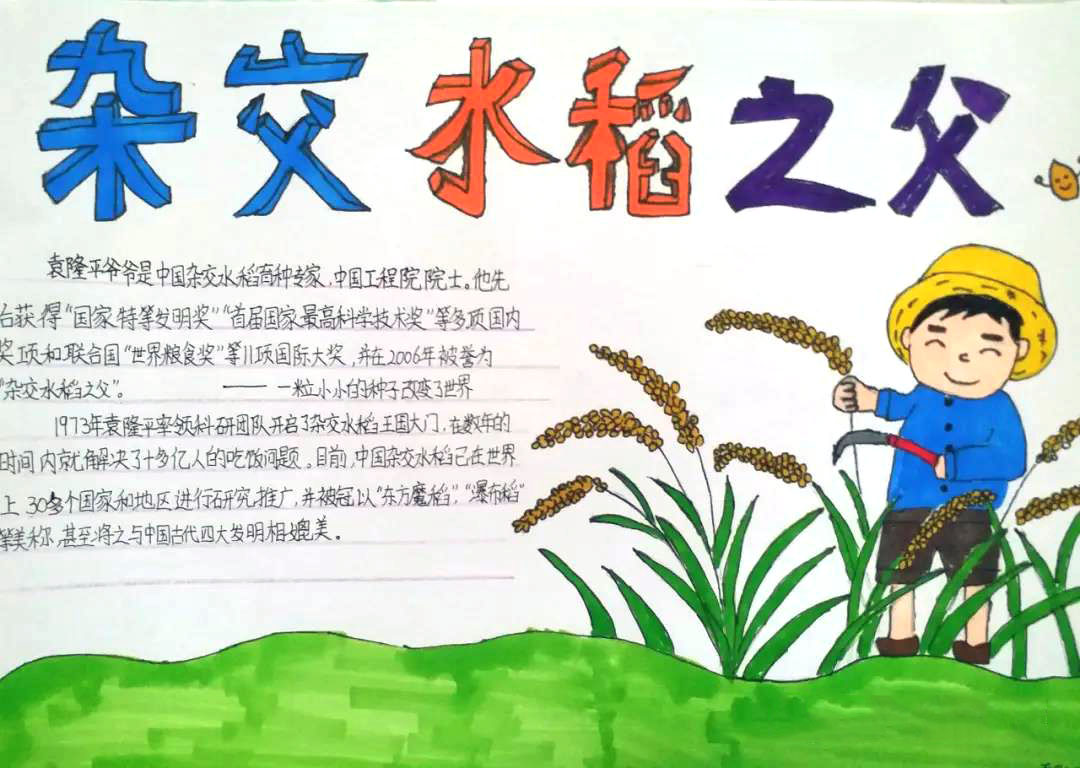 杂交水稻之父
袁隆平爷爷是中国杂交水稻育种专家,中国工程院院士。他先
后获得“国家特等发明奖”“首届国家最高科学技术奖”等多项国内
奖项和联合国“世界粮食奖”等11项国际大奖,并在2006年被誉为
“杂交水稻之父”。 —— 一粒小小的种子改变了世界
1973年袁隆平率领科研团队开启了杂交水稻王国大门,在数年的
时间内就解决了十多亿人的吃饭问题。目前,中国杂交水稻已在世界
上30多个国家和地区进行研究推广,并被冠以“东方魔稻”,“瀑布稻”
等美称,甚至将之与中国古代四大发明相媲美。